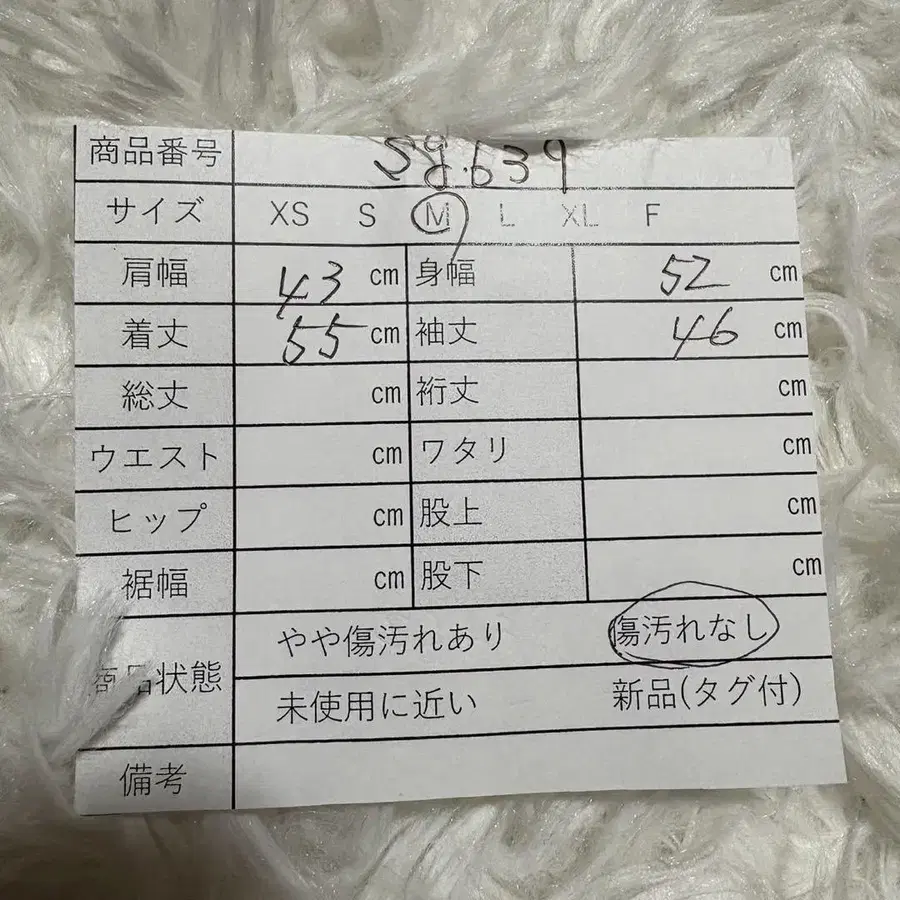 商品番号
サイズ XS S M L XL F
肩幅 43 cm 身幅 52 cm
着丈 55 cm 袖丈 46 cm
総丈 cm 裄丈 cm
ウエスト cm ワタリ cm
ヒップ cm 股上 cm
裾幅 cm 股下 cm
商品状態 やや傷汚れあり 傷汚れなし
未使用に近い 新品(タグ付)
備考